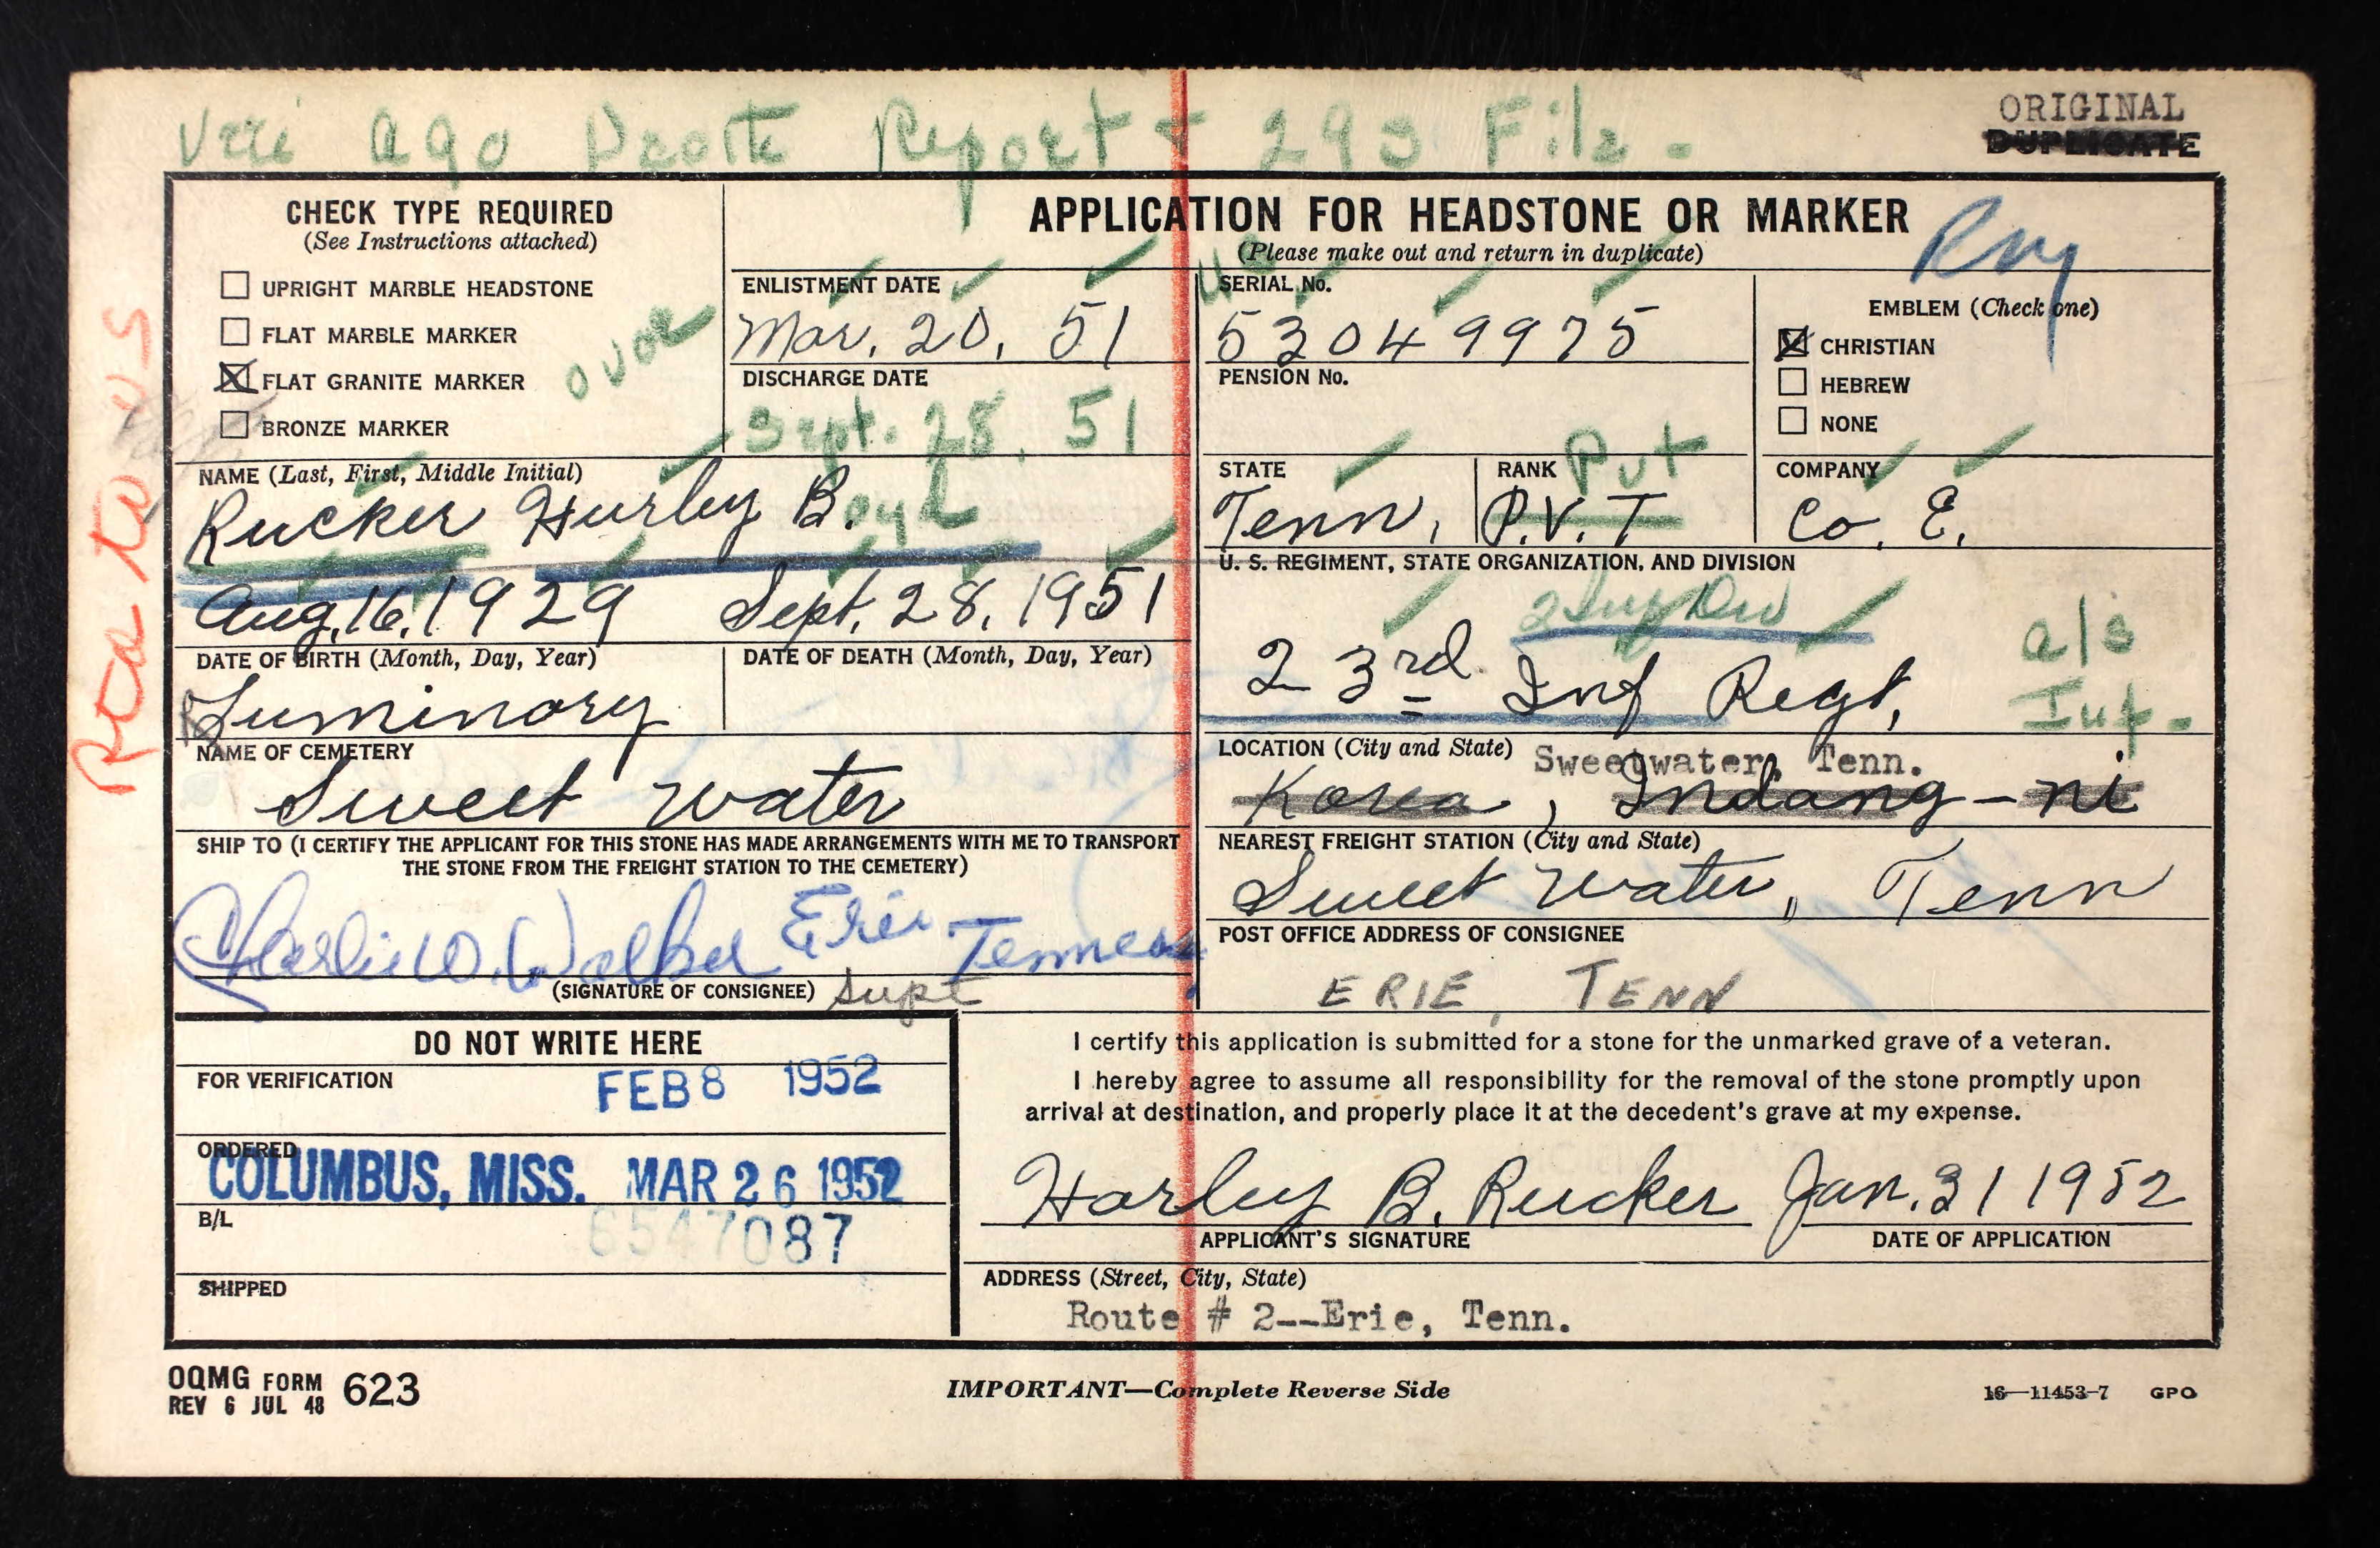 Veri AGO Death Report + 293 File -
ORIGINAL
DUPLICATE
CHECK TYPE REQUIRED
(See Instructions attached)
UPRIGHT MARBLE HEADSTONE
FLAT MARBLE MARKER
FLAT GRANITE MARKER
BRONZE MARKER
over
APPLICATION FOR HEADSTONE OR MARKER
(Please make out and return in duplicate)
ENLISTMENT DATE
Mar. 20, 51
SERIAL No.
US
53049975
EMBLEM (Check one)
CHRISTIAN
HEBREW
NONE
DISCHARGE DATE
Sept. 28, 51
PENSION No.
NAME (Last, First, Middle Initial)
Rucker Hurley B. oyd
STATE
Tenn.
RANK Pvt
P.V.T
COMPANY
Co. E.
U. S. REGIMENT, STATE ORGANIZATION, AND DIVISION
2 Inf Div
23rd Inf Regt.
a/s
Inf.
Aug. 16, 1929 Sept. 28, 1951
DATE OF BIRTH (Month, Day, Year)
DATE OF DEATH (Month, Day, Year)
Luminary
NAME OF CEMETERY
LOCATION (City and State) Sweetwater, Tenn.
Korea, Indang-ni
Sweet Water
SHIP TO (I CERTIFY THE APPLICANT FOR THIS STONE HAS MADE ARRANGEMENTS WITH ME TO TRANSPORT
THE STONE FROM THE FREIGHT STATION TO THE CEMETERY)
NEAREST FREIGHT STATION (City and State)
Sweet Water, Tenn
Charlie W. Walker Erie Tennessee
(SIGNATURE OF CONSIGNEE) Supt
POST OFFICE ADDRESS OF CONSIGNEE
ERIE, TENN
DO NOT WRITE HERE
FOR VERIFICATION
FEB 8 1952
ORDERED
COLUMBUS, MISS. MAR 26 1952
B/L
6547087
SHIPPED
I certify this application is submitted for a stone for the unmarked grave of a veteran.
I hereby agree to assume all responsibility for the removal of the stone promptly upon
arrival at destination, and properly place it at the decedent's grave at my expense.
Harley B. Rucker Jan. 31 1952
APPLICANT'S SIGNATURE
DATE OF APPLICATION
ADDRESS (Street, City, State)
Route # 2--Erie, Tenn.
OQMG FORM 623
REV 6 JUL 48
IMPORTANT—Complete Reverse Side
16—11453-7 GPO